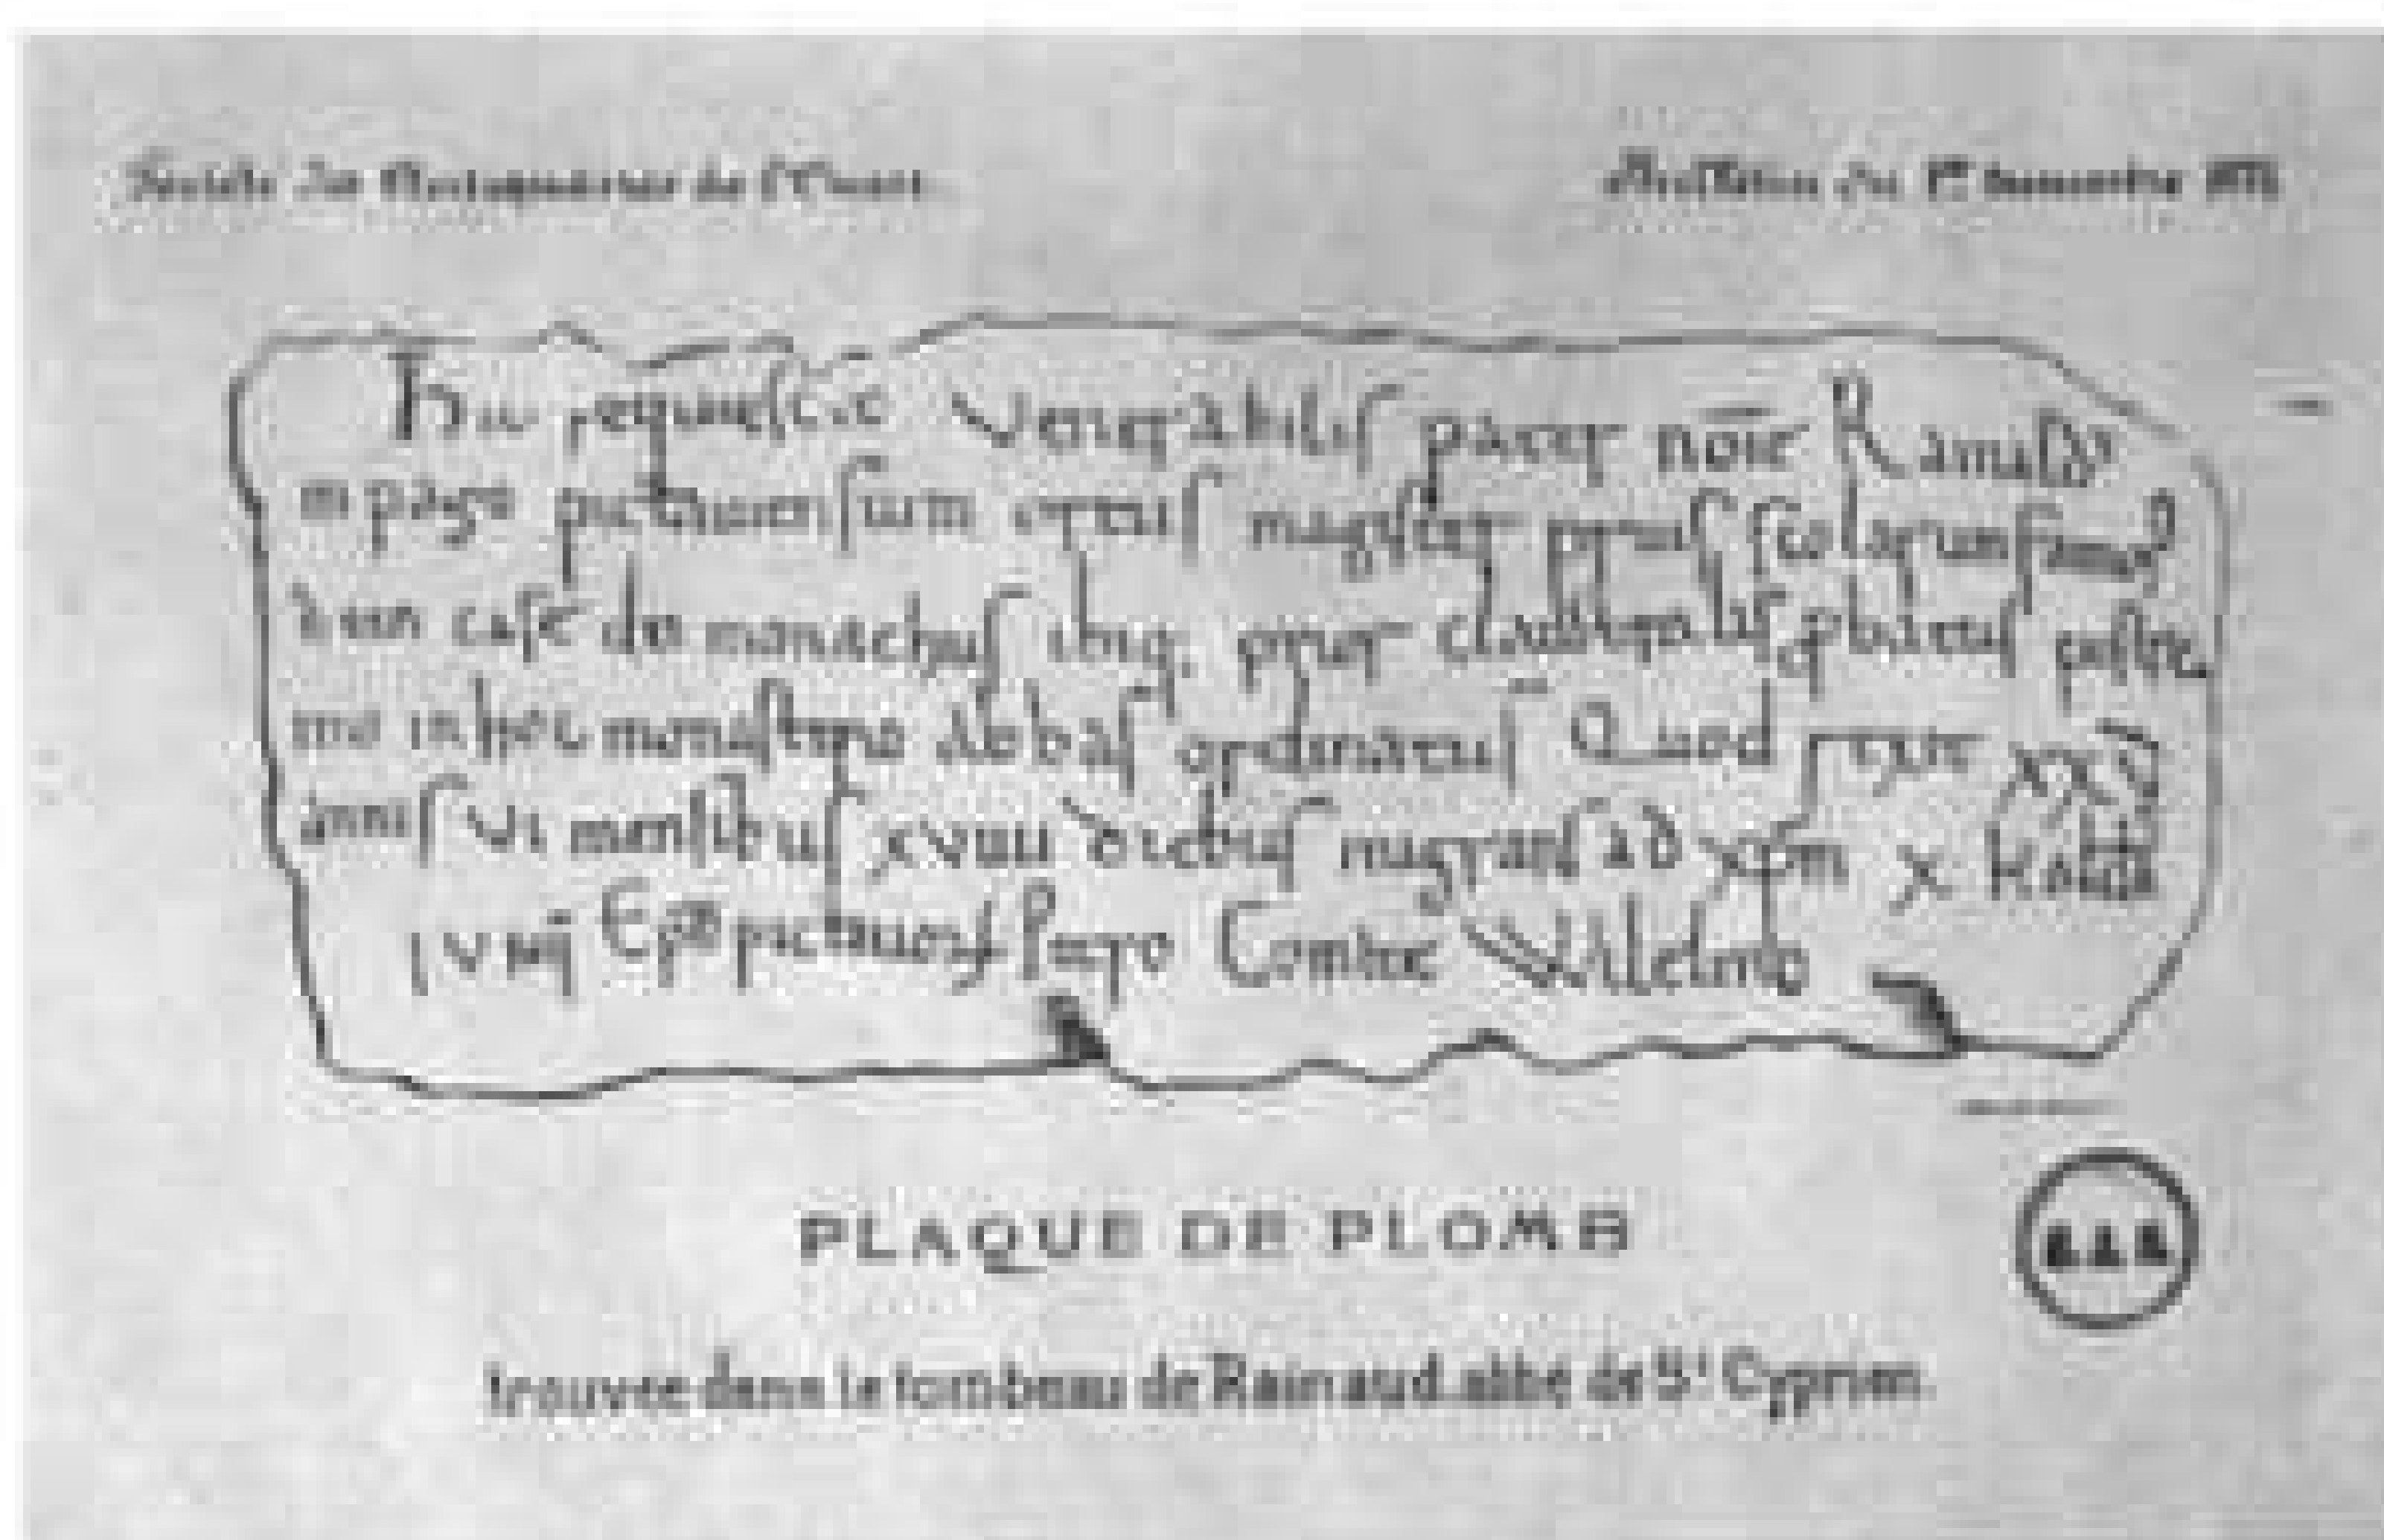 Société des Antiquaires de l'Ouest.
Bulletin du trimestre
Hic requiescit Venerabilis pater nōīe Rainald'
in pago pictaviensium ortus magister prius scolarum
casę dei monachus ibiq; prior claustralis pbatus postre
mo in hoc monasterio abbas ordinatus Quod rexit
annis VI mensibus XVIIII diebus migrans ad xpm X
IVNII Epō Petro Comite Willelmo
PLAQUE DE PLOMB
trouvée dans le tombeau de Rainaud abbé de St Cyprien.